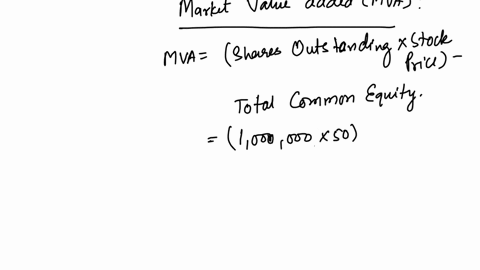 Market Value added (MVA):
MVA = (Shares Outstanding × Stock
Price) -
Total Common Equity.
= (1,000,000 × 50)